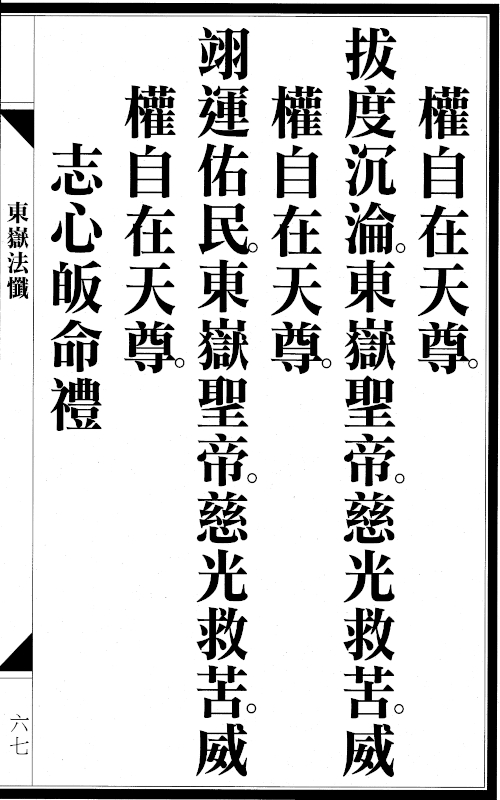 權自在天尊。
拔度沉淪。東嶽聖帝。慈光救苦。威
權自在天尊。
翊運佑民。東嶽聖帝。慈光救苦。威
權自在天尊。
志心皈命禮
東嶽法懺
六七